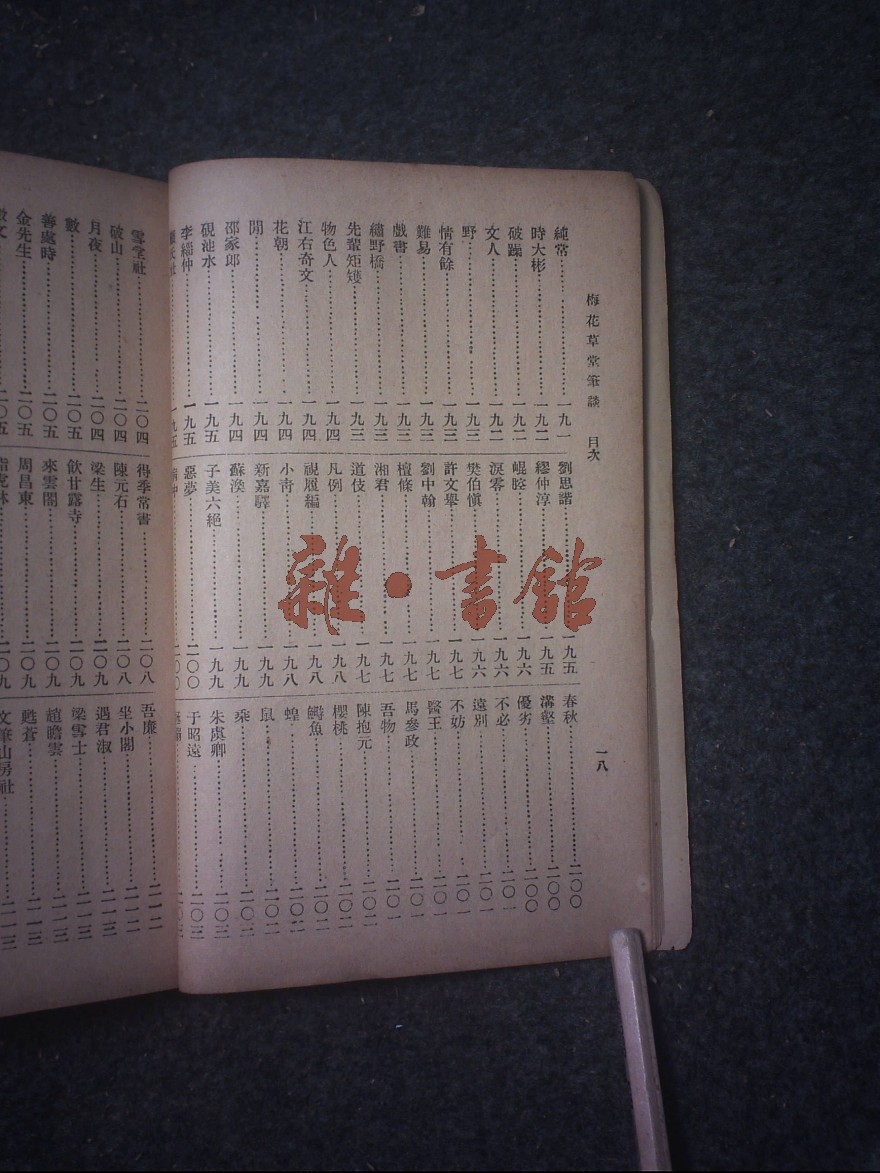 梅花草堂筆談 目次
一八
純常 一九一
時大彬 一九二
破躏 一九二
文人 一九二
野 一九三
情有餘 一九三
難易 一九三
戲書 一九三
繡野橋 一九三
先輩矩矱 一九三
物色人 一九四
江右奇文 一九四
花朝 一九四
閒 一九四
邵家郎 一九四
硯池水 一九五
李緇仲 一九五
劉思諧 一九五
繆仲淳 一九五
崐睦 一九六
淚零 一九六
樊伯愼 一九六
許文擧 一九七
劉中翰 一九七
檀條 一九七
湘君 一九七
道伎 一九七
凡例 一九八
視履編 一九八
小靑 一九八
新嘉驛 一九九
蘇渙 一九九
子美六絕 一九九
惡夢 二〇〇
春秋 二〇〇
溝壑 二〇〇
優劣 二〇〇
不必 二〇〇
遠別 二〇一
不妨 二〇一
醫王 二〇一
馬參政 二〇一
吾物 二〇一
陳抱元 二〇二
櫻桃 二〇二
鰣魚 二〇二
蝗 二〇二
鼠 二〇二
乘 二〇三
朱虞卿 二〇三
于昭遠 二〇三
雪堂社 二〇四
破山 二〇四
月夜 二〇四
數 二〇五
善處時 二〇五
金先生 二〇五
得季常書 二〇八
陳元石 二〇八
梁生 二〇九
飮甘露寺 二〇九
來雲閣 二〇九
周昌東 二〇九
吾廉 二一二
坐小閣 二一二
遇君淑 二一三
梁雪士 二一三
趙瞻雲 二一三
甦蒼 二一三
文筆山房社 二一三
雜·書館